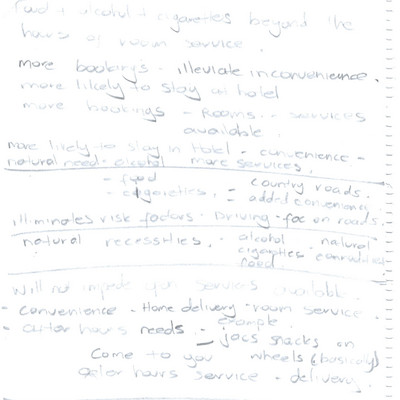 food + alcohol + cigarettes beyond the
hours of room service.
more booking's - illeviate inconvenience.
more likely to stay at hotel
more bookings - Rooms. - services
available.
more likely to stay in Hotel - convenience -
natural need - alcohol more services.
- food country roads.
- cigarettes. = added convenience
illiminates risk factors - Driving - on roads.
natural necessities. alcohol natural
cigarettes
food
Will not impede your services available.
- convenience - Home delivery - room service.
- after hours needs - example.
- jocs snacks on
Come to you wheels (basically)
after hours service - delivery.